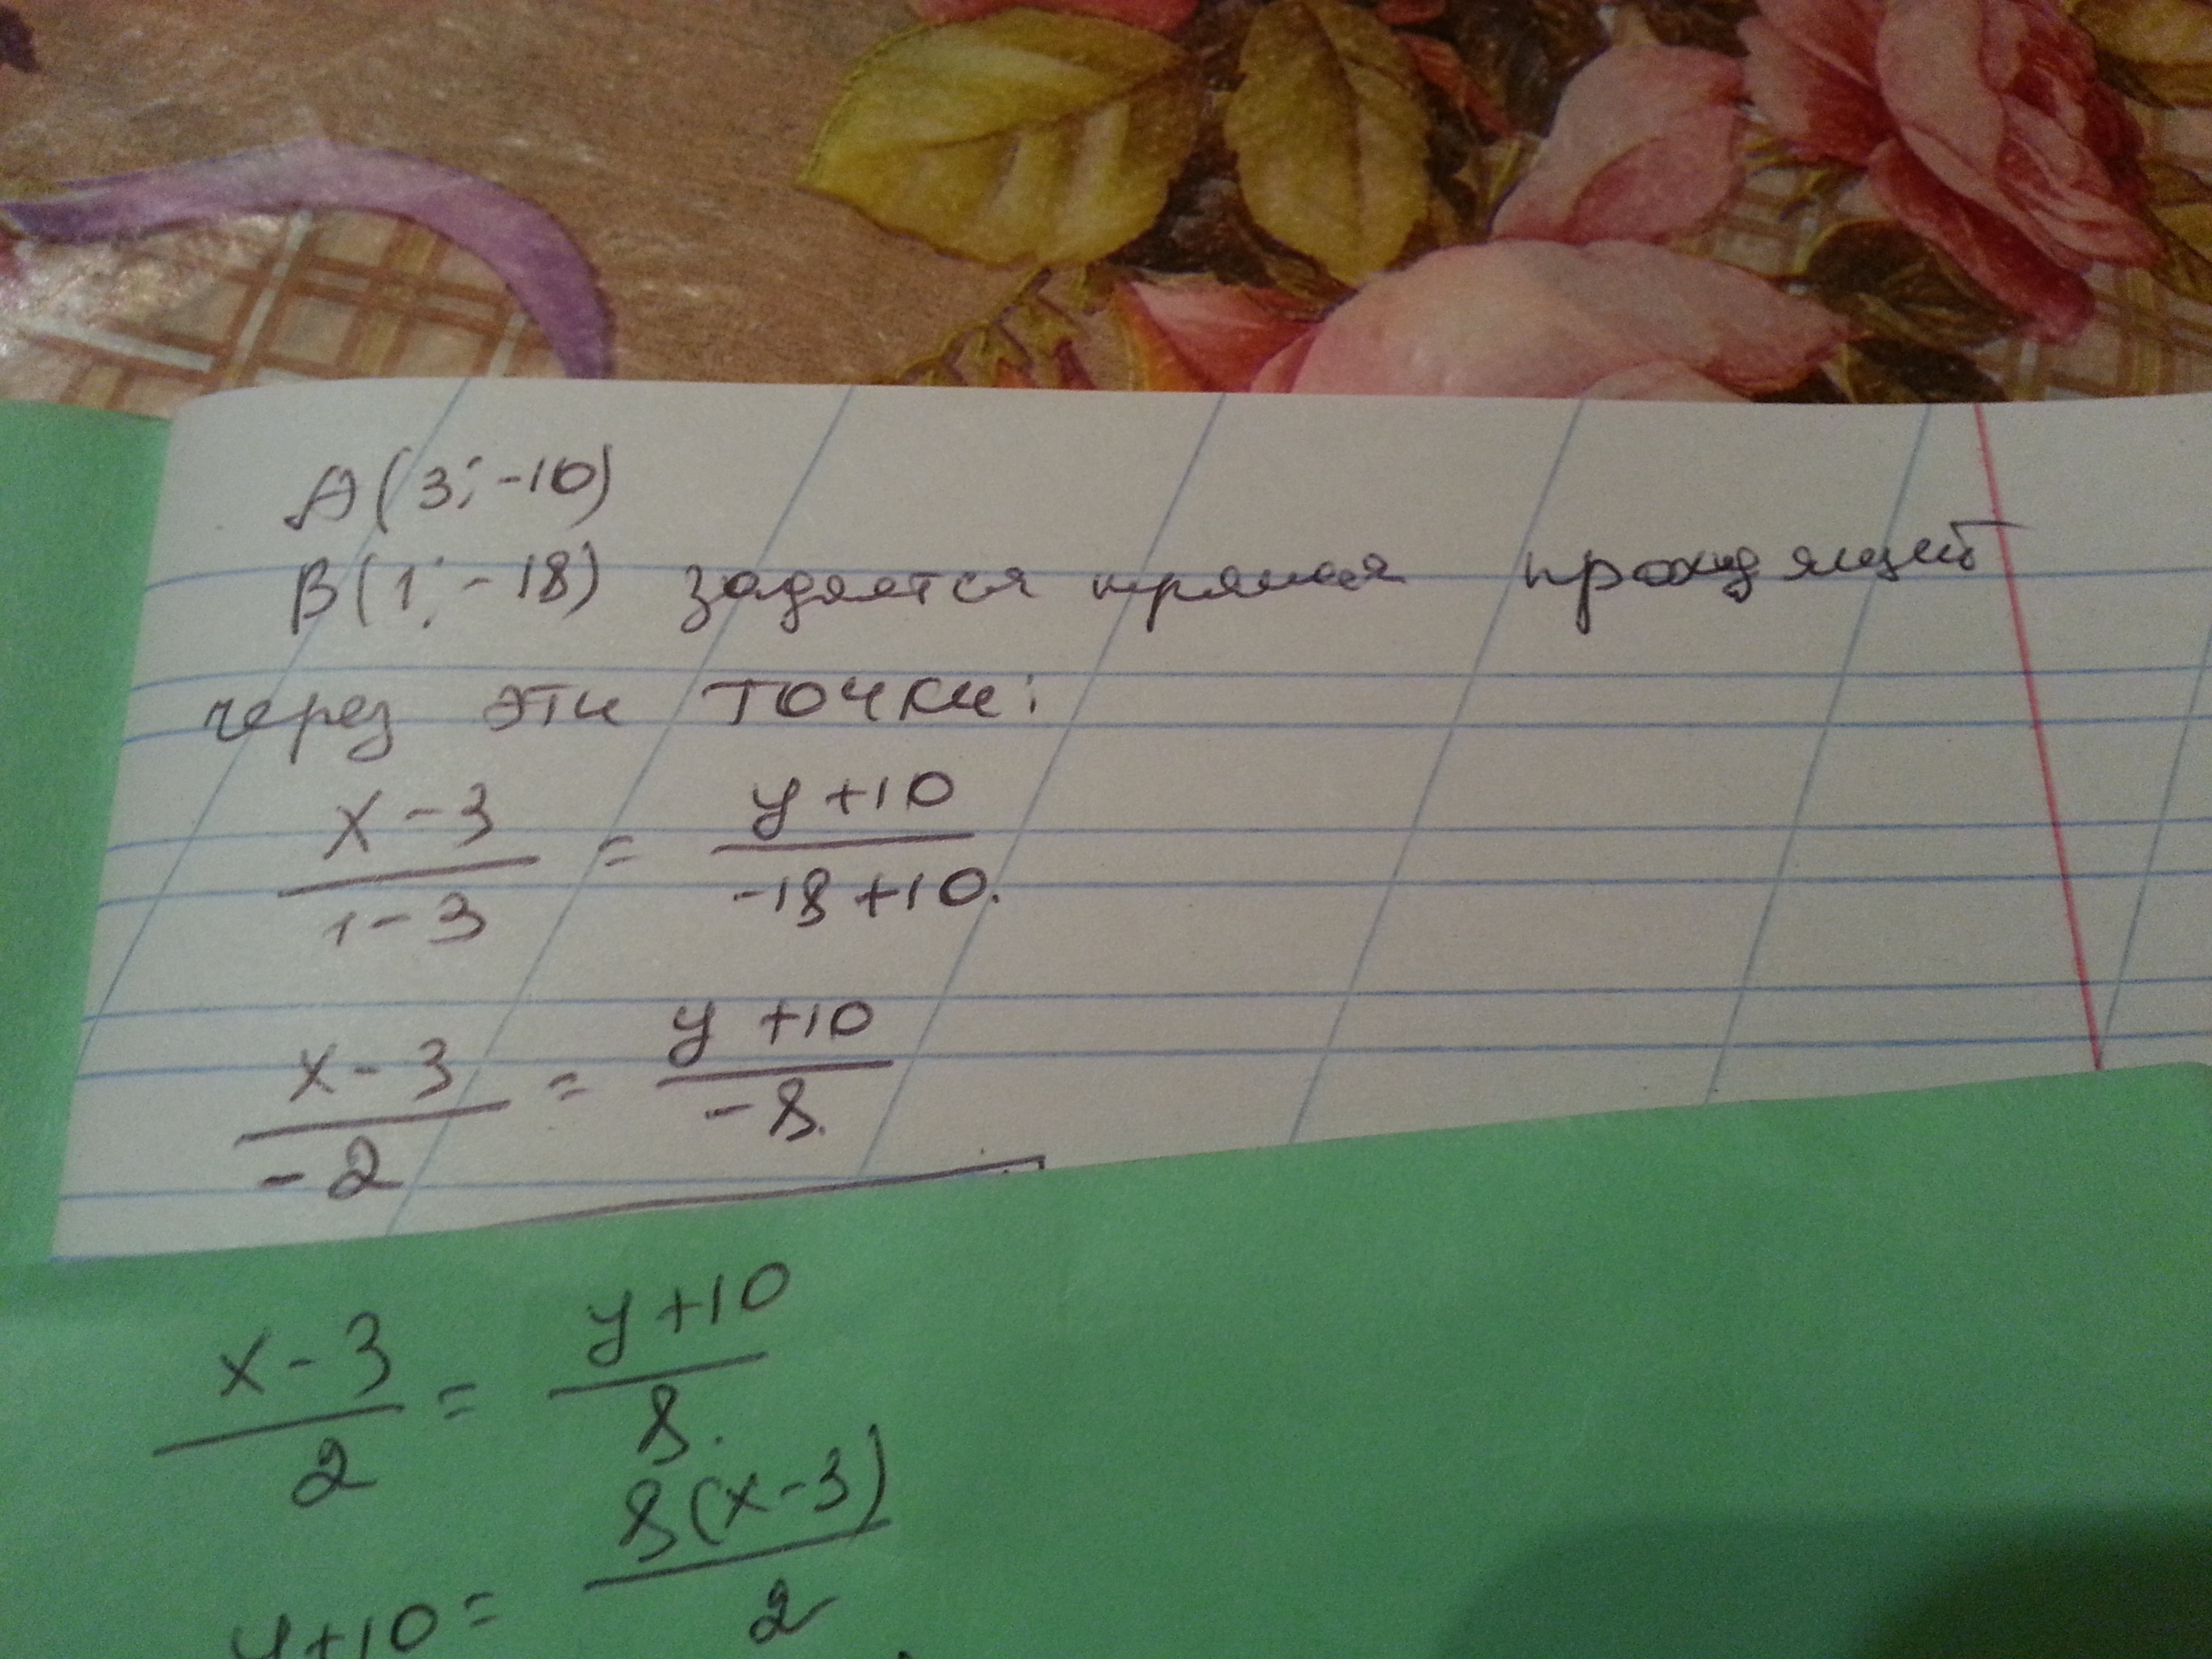 A(3; -10)
B(1; -18) задается прямая проходящей
через эти точки:
x-3/1-3 = y+10/-18+10.
x-3/-2 = y+10/-8.
x-3/2 = y+10/8.
y+10 = 8(x-3)/2